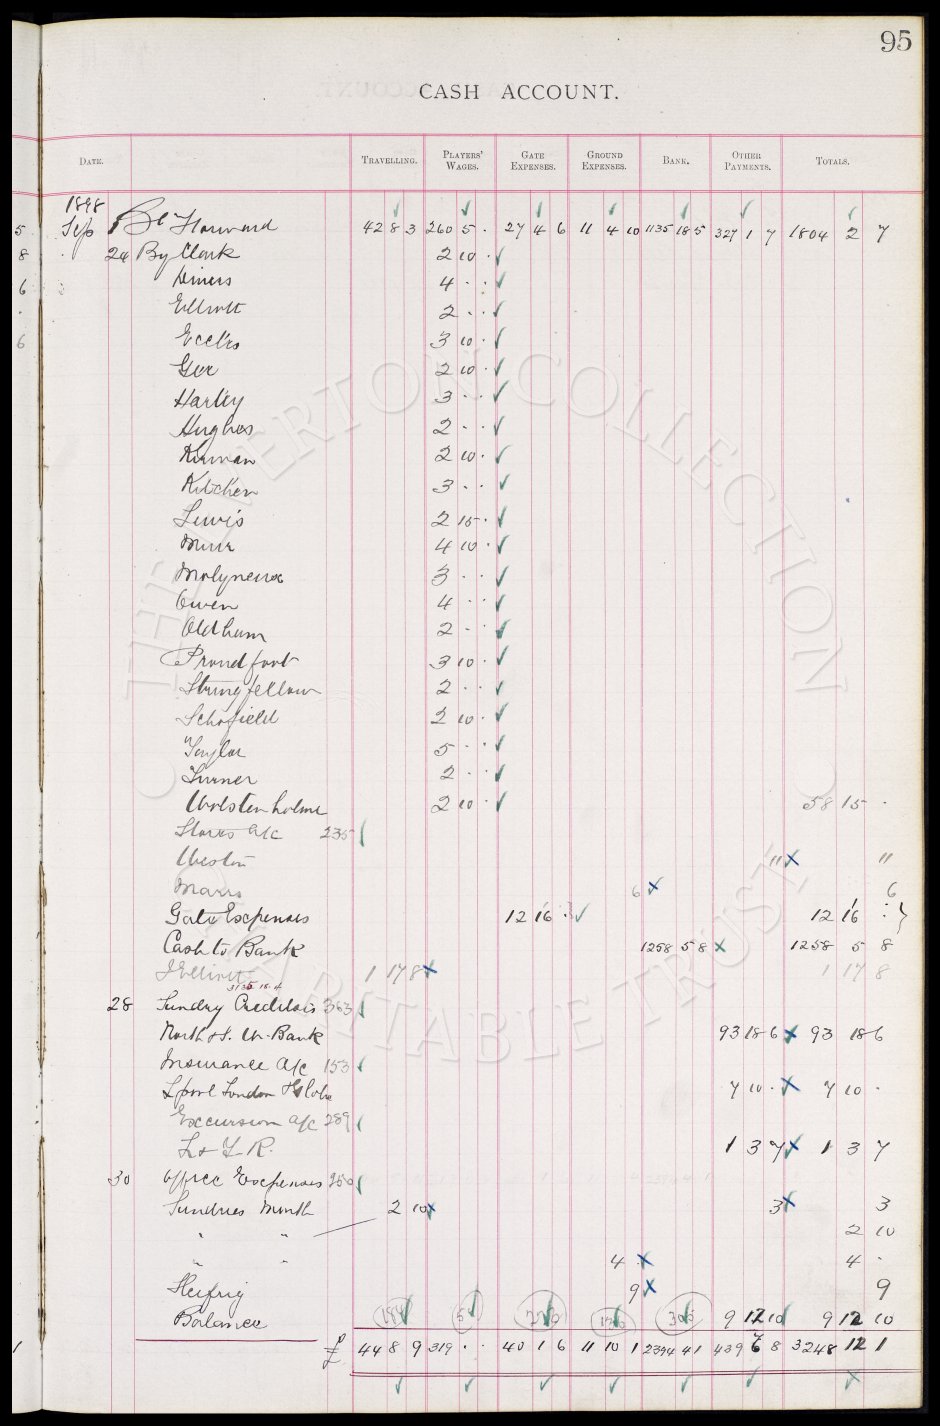 95
CASH ACCOUNT.
DATE. TRAVELLING. PLAYERS' WAGES. GATE EXPENSES. GROUND EXPENSES. BANK. OTHER PAYMENTS. TOTALS.
1898
5 Sep Bt Forward 42 8 3 260 5 . 27 4 6 11 4 10 1135 18 5 327 1 7 1804 2 7
8 . 24 By Clark 2 10 .
6 Diviers 4 . .
. Elliott 2 . .
6 Eccles 3 10 .
Gee 2 10 .
Harley 3 . .
Hughes 2 . .
Kirwan 2 10 .
Kitchen 3 . .
Lewis 2 15 .
Muir 4 10 .
Molyneux 3 . .
Owen 4 . .
Oldham 2 . .
Proudfoot 3 10 .
Stringfellow 2 . .
Schofield 2 10 .
Taylor 5 . .
Turner 2 . .
Wolstenholme 2 10 . 58 15 .
Stores a/c 235
Weston 11 11
Marrs 6 6
Gate Expenses 12 16 . 12 16 .
Cash to Bank 1258 5 8 1258 5 8
J Elliott 1 17 8 1 17 8
28 Sundry Creditors 363
North & S. W. Bank 93 18 6 93 18 6
Insurance a/c 153
Lpool London & Globe 7 10 . 7 10 .
Excursion a/c 289
L & Y R. 1 3 7 1 3 7
30 Office Expenses 250
Sundries Month 2 10 3 3
" " 2 10
" " 4 . 4 .
Heifrig 9 9
Balance 9 12 10 9 12 10
1 £ 44 8 9 319 . . 40 1 6 11 10 1 2394 4 1 439 6 8 3248 12 1
THE EVERTON COLLECTION CHARITABLE TRUST